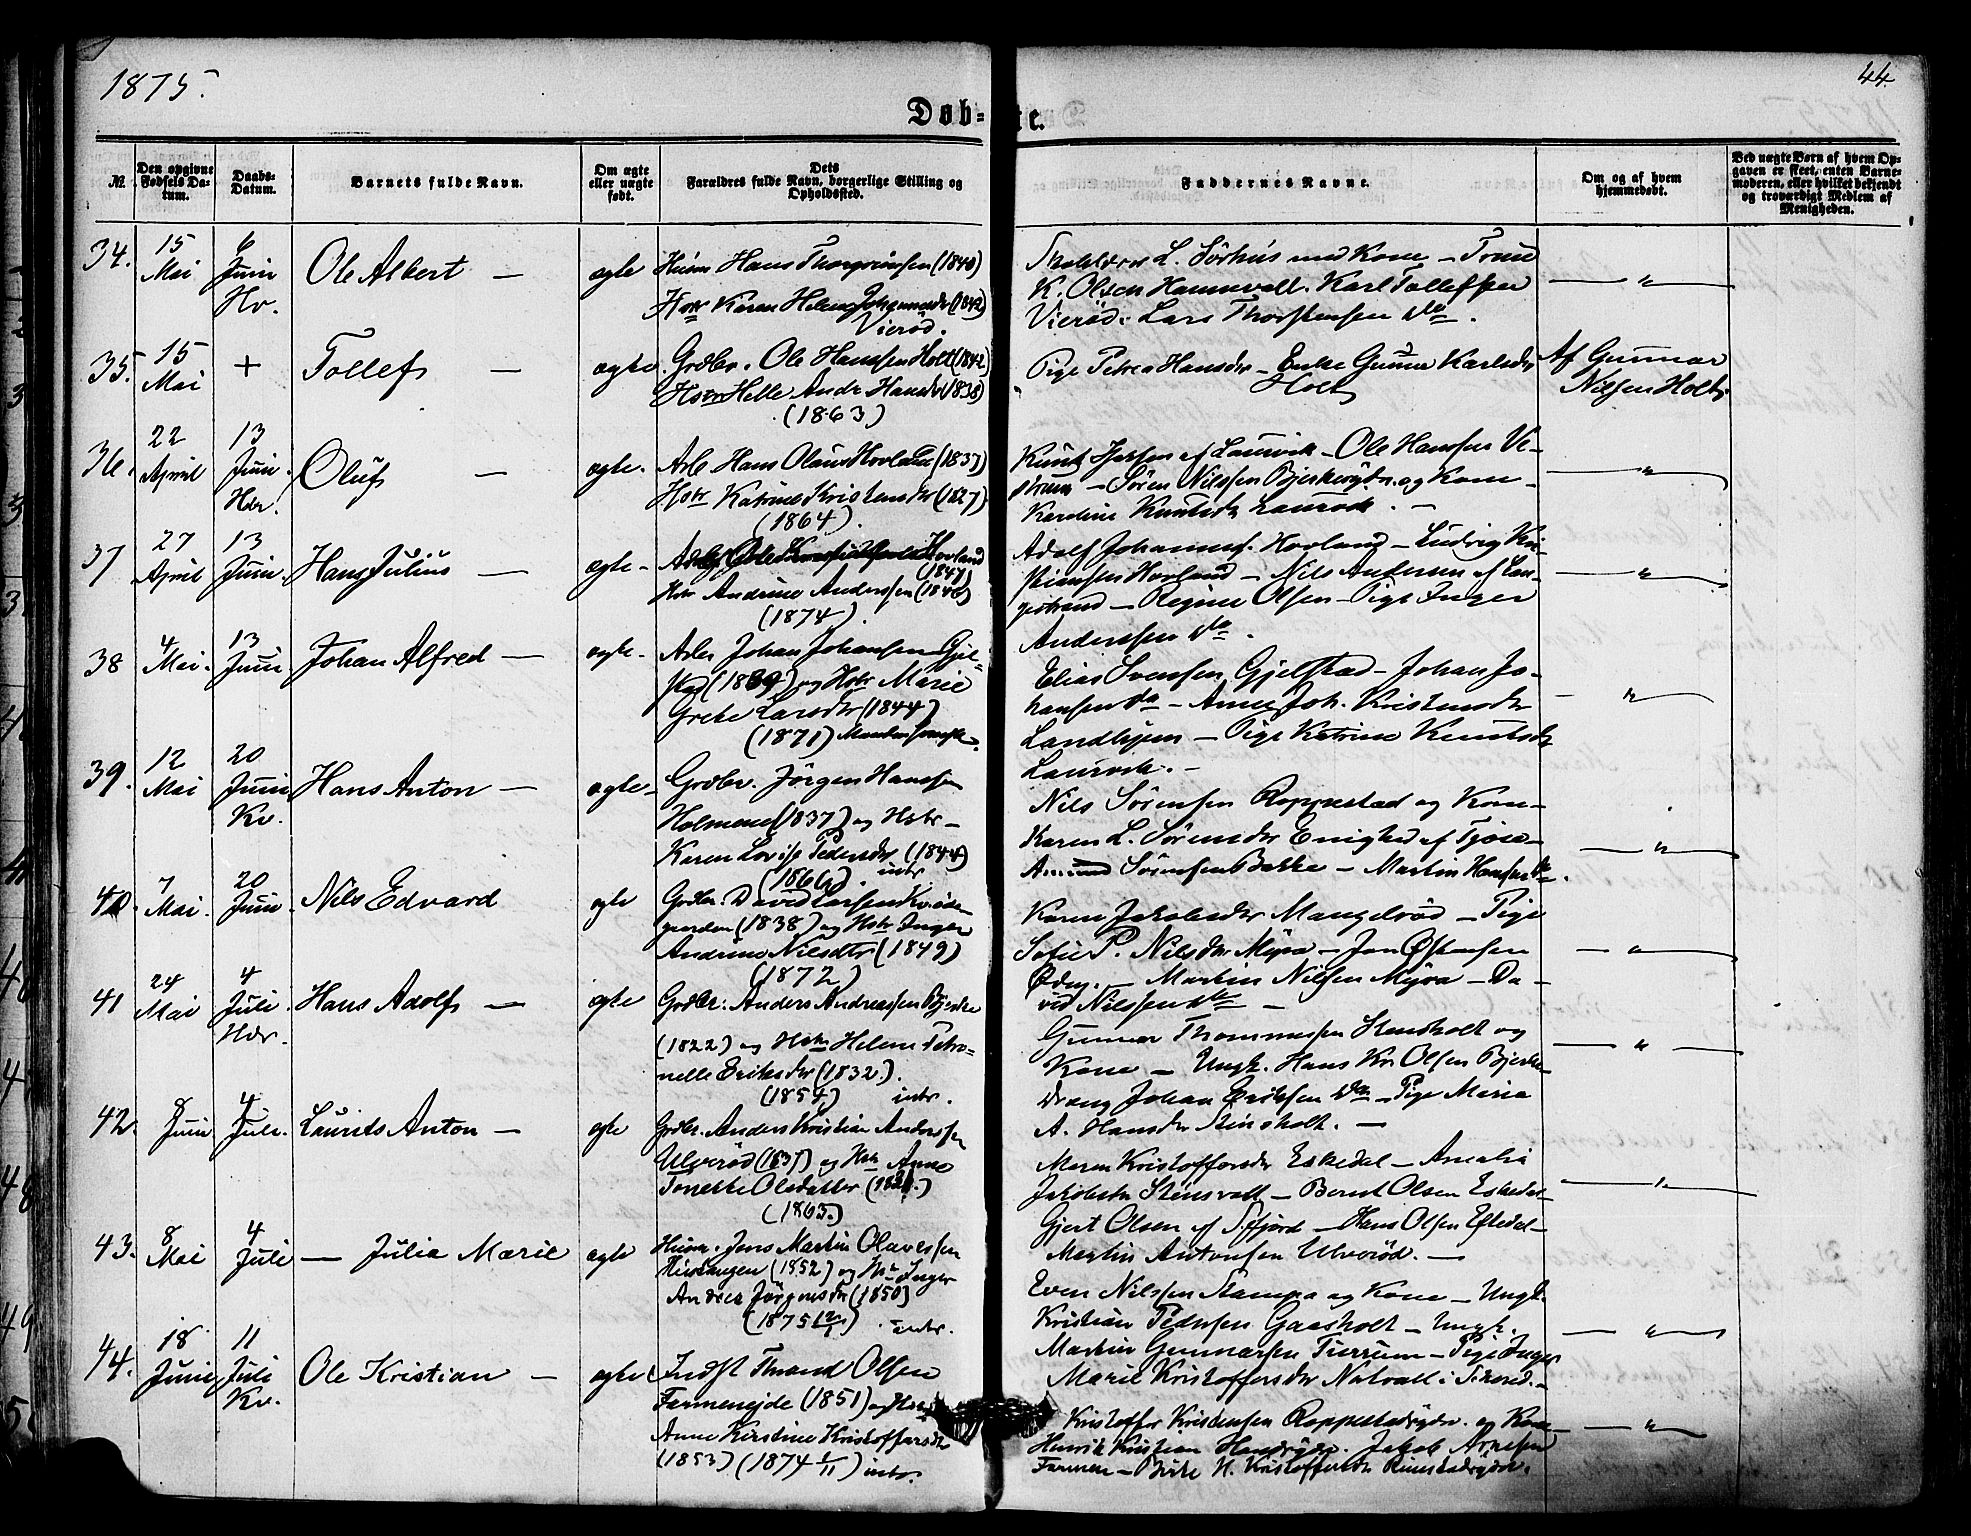 1875.
44.
Døb-te.
№.
Den opgivne Fødsels Datum.
Daabs-Datum.
Barnets fulde Navn.
Om ægte eller uægte født.
Dets Forældres fulde Navn, borgerlige Stilling og Opholdssted.
Faddernes Navne.
Om og af hvem hjemmedøbt.
Ved uægte Børn af hvem Opgaven er skeet, enten Barnemoderen, eller hvilket bekjendt og troværdigt Medlem af Menigheden.
34. 15 Mai 6 Juni Hv. Ole Albert — ægte
Husm Hans Thorgrimsen (1840)
Hstr Karen Helene (1842)
Vierød.
L. Sørhus med Kone —
K. Olsen Hannevall. Karl Tollefsen
Vierød. Lars Thorstensen do.
— " —
35. 15 Mai + Tollef — ægte
Grdbr. Ole Hanssen Holt (1842)
Hstr Helle Andr. Hansdr (1838)
(1863)
Pige Petrea Hansdr — Enke Gunner Karlsdr
Holt
Af Gunnar
Nilsen Holt
36. 22 April 13 Juni Hdr. Oluf — ægte
Arb. Hans Olaus Hovland (1837)
Hstr Katrine Kristensdr (1827)
(1864).
Knut Jessen af Laurvik — Ole Hanssen Ve-
— Søren Nilssen Bjerkerydn. og Kone
Karoline Knutsdr Laurvik. —
— " —
37 27 April 13 Juni Hans Julius — ægte
Hovland
(1847)
Hstr Andrine Anderssen (1846)
(1874).
Adolf Johannes. Hovland — Ludvig Kri-
stiansen Hovland — Nils Andersen af Lan-
gestrand — Regine Olsen — Pige Inger
Anderssen do.
— " —
38 4 Mai 13 Juni Johan Alfred — ægte
Arb. Johan Johansen Gjel-
stad (1849) og Hstr Marie
Grete Larsdtr (1844)
(1871)
Elias Svenssen Gjelstad — Johan Jo-
hansen do — Anne Joh. Kristensdtr
Landhjem — Pige Katrine Knutsdtr
Laurvik. —
— " —
39. 12 Mai 20 Juni Kv. Hans Anton — ægte
Grdbr. Jørgen Hanssen
Holmene (1837) og Hstr
Karen Lovise Pedersdtr (1844)
(1866). intr.
Nils Sørensen Roppestad og Kone
Karen L. Sørensdtr Enighed af Tjøse
Sørensen Bakke — Martin Hansen do.
— " —
40. 7 Mai 20 Juni Nils Edvard ægte
Grdbr. David Larsen
gaarden (1838) og Hstr Inger
Andrine Nilsdtr (1849)
(1872)
Karen Jakobsdtr Mangelrød — Pige
Sofie P. Nilsdtr Myra — Jon Østensen
— Martin Nilsen Myra — Da-
vid Nilssen do —
— " —
41 24 Mai 4 Juli Hdr. Hans Adolf — ægte
Grdbr. Anders Andreassen Bjerke
(1822) og Hstr Helene Petro-
nelle Eriksdtr (1832).
(1854) intr.
Gunnar Thommessen Stensholt og
Kone — Ungk. Hans Kr. Olsen Bjerke
dreng Johan Eriksen do — Pige Maria
A. Hansdtr Stensholt. —
— " —
42. 8 Juni 4 Juli Laurits Anton — ægte
Grdbr. Anders Kristian Anderssen
Ulverød (1837) og Hstr Anne
Tonette Olsdatter
(1863.)
Maren Kristoffersdtr Eskedal — Amalia
Jakobsdtr Stensvall — Bernt Olsen Eskedal
Gjert Olsen af S.fjord — Hans Olsen Eskedal —
Martin Antonsen Ulverød. —
— " —
43. 8 Mai 4 Juli — Julia Marie ægte
Husm. Jens Martin Olavessen
(1852) og Hstr Inger
Andrea Jørgensdtr (1850)
(1875) intr.
Even Nilssen Stampa og Kone — Ungk.
Kristian Pedersen Gaasholt — Ungk.
Martin Gunnarsen Tjerrum — Pige Inger
Marie Kristoffersdtr Natvall i —
— " —
44. 18 Juni 11 Juli Kv. Ole Kristian — ægte
Indst Thrond Olsen
Farmenejde (1851) og Hstr
Anne Kirstine Kristoffersdtr
(1853) (1874 1/11) intr.
Kristoffer Kristensen Roppestadrydn. og Kone
Henrik Kristian. Jakob Arnesen
Farmen — N. Kristoffersdtr
— " —